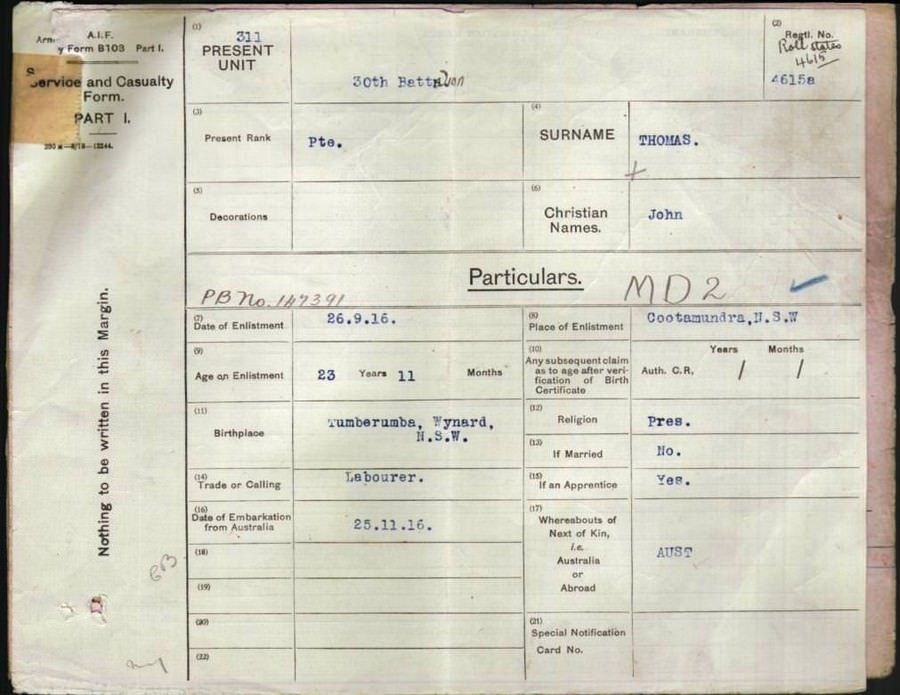 A.I.F.
Army Form B103 Part I.
Service and Casualty
Form.
PART I.
Nothing to be written in this Margin.
(1)
311
PRESENT
UNIT
30th Battalion
(2)
Regtl. No.
Roll states
4615
4615a
(3)
Present Rank
Pte.
(4)
SURNAME
THOMAS.
(5)
Decorations
(6)
Christian
Names.
John
Particulars.
PB No. 147391
MD2
(7)
Date of Enlistment
26.9.16.
(8)
Place of Enlistment
Cootamundra,N.S.W
(9)
Age on Enlistment
23 Years 11 Months
(10)
Any subsequent claim
as to age after veri-
fication of Birth
Certificate
Years Months
Auth. C.R, / /
(11)
Birthplace
Tumberumba, Wynard,
N.S.W.
(12)
Religion
Pres.
(13)
If Married
No.
(14)
Trade or Calling
Labourer.
(15)
If an Apprentice
Yes.
(16)
Date of Embarkation
from Australia
25.11.16.
(17)
Whereabouts of
Next of Kin,
i.e.
Australia
or
Abroad
AUST
(18)
(19)
(20)
(21)
Special Notification
Card No.
(22)